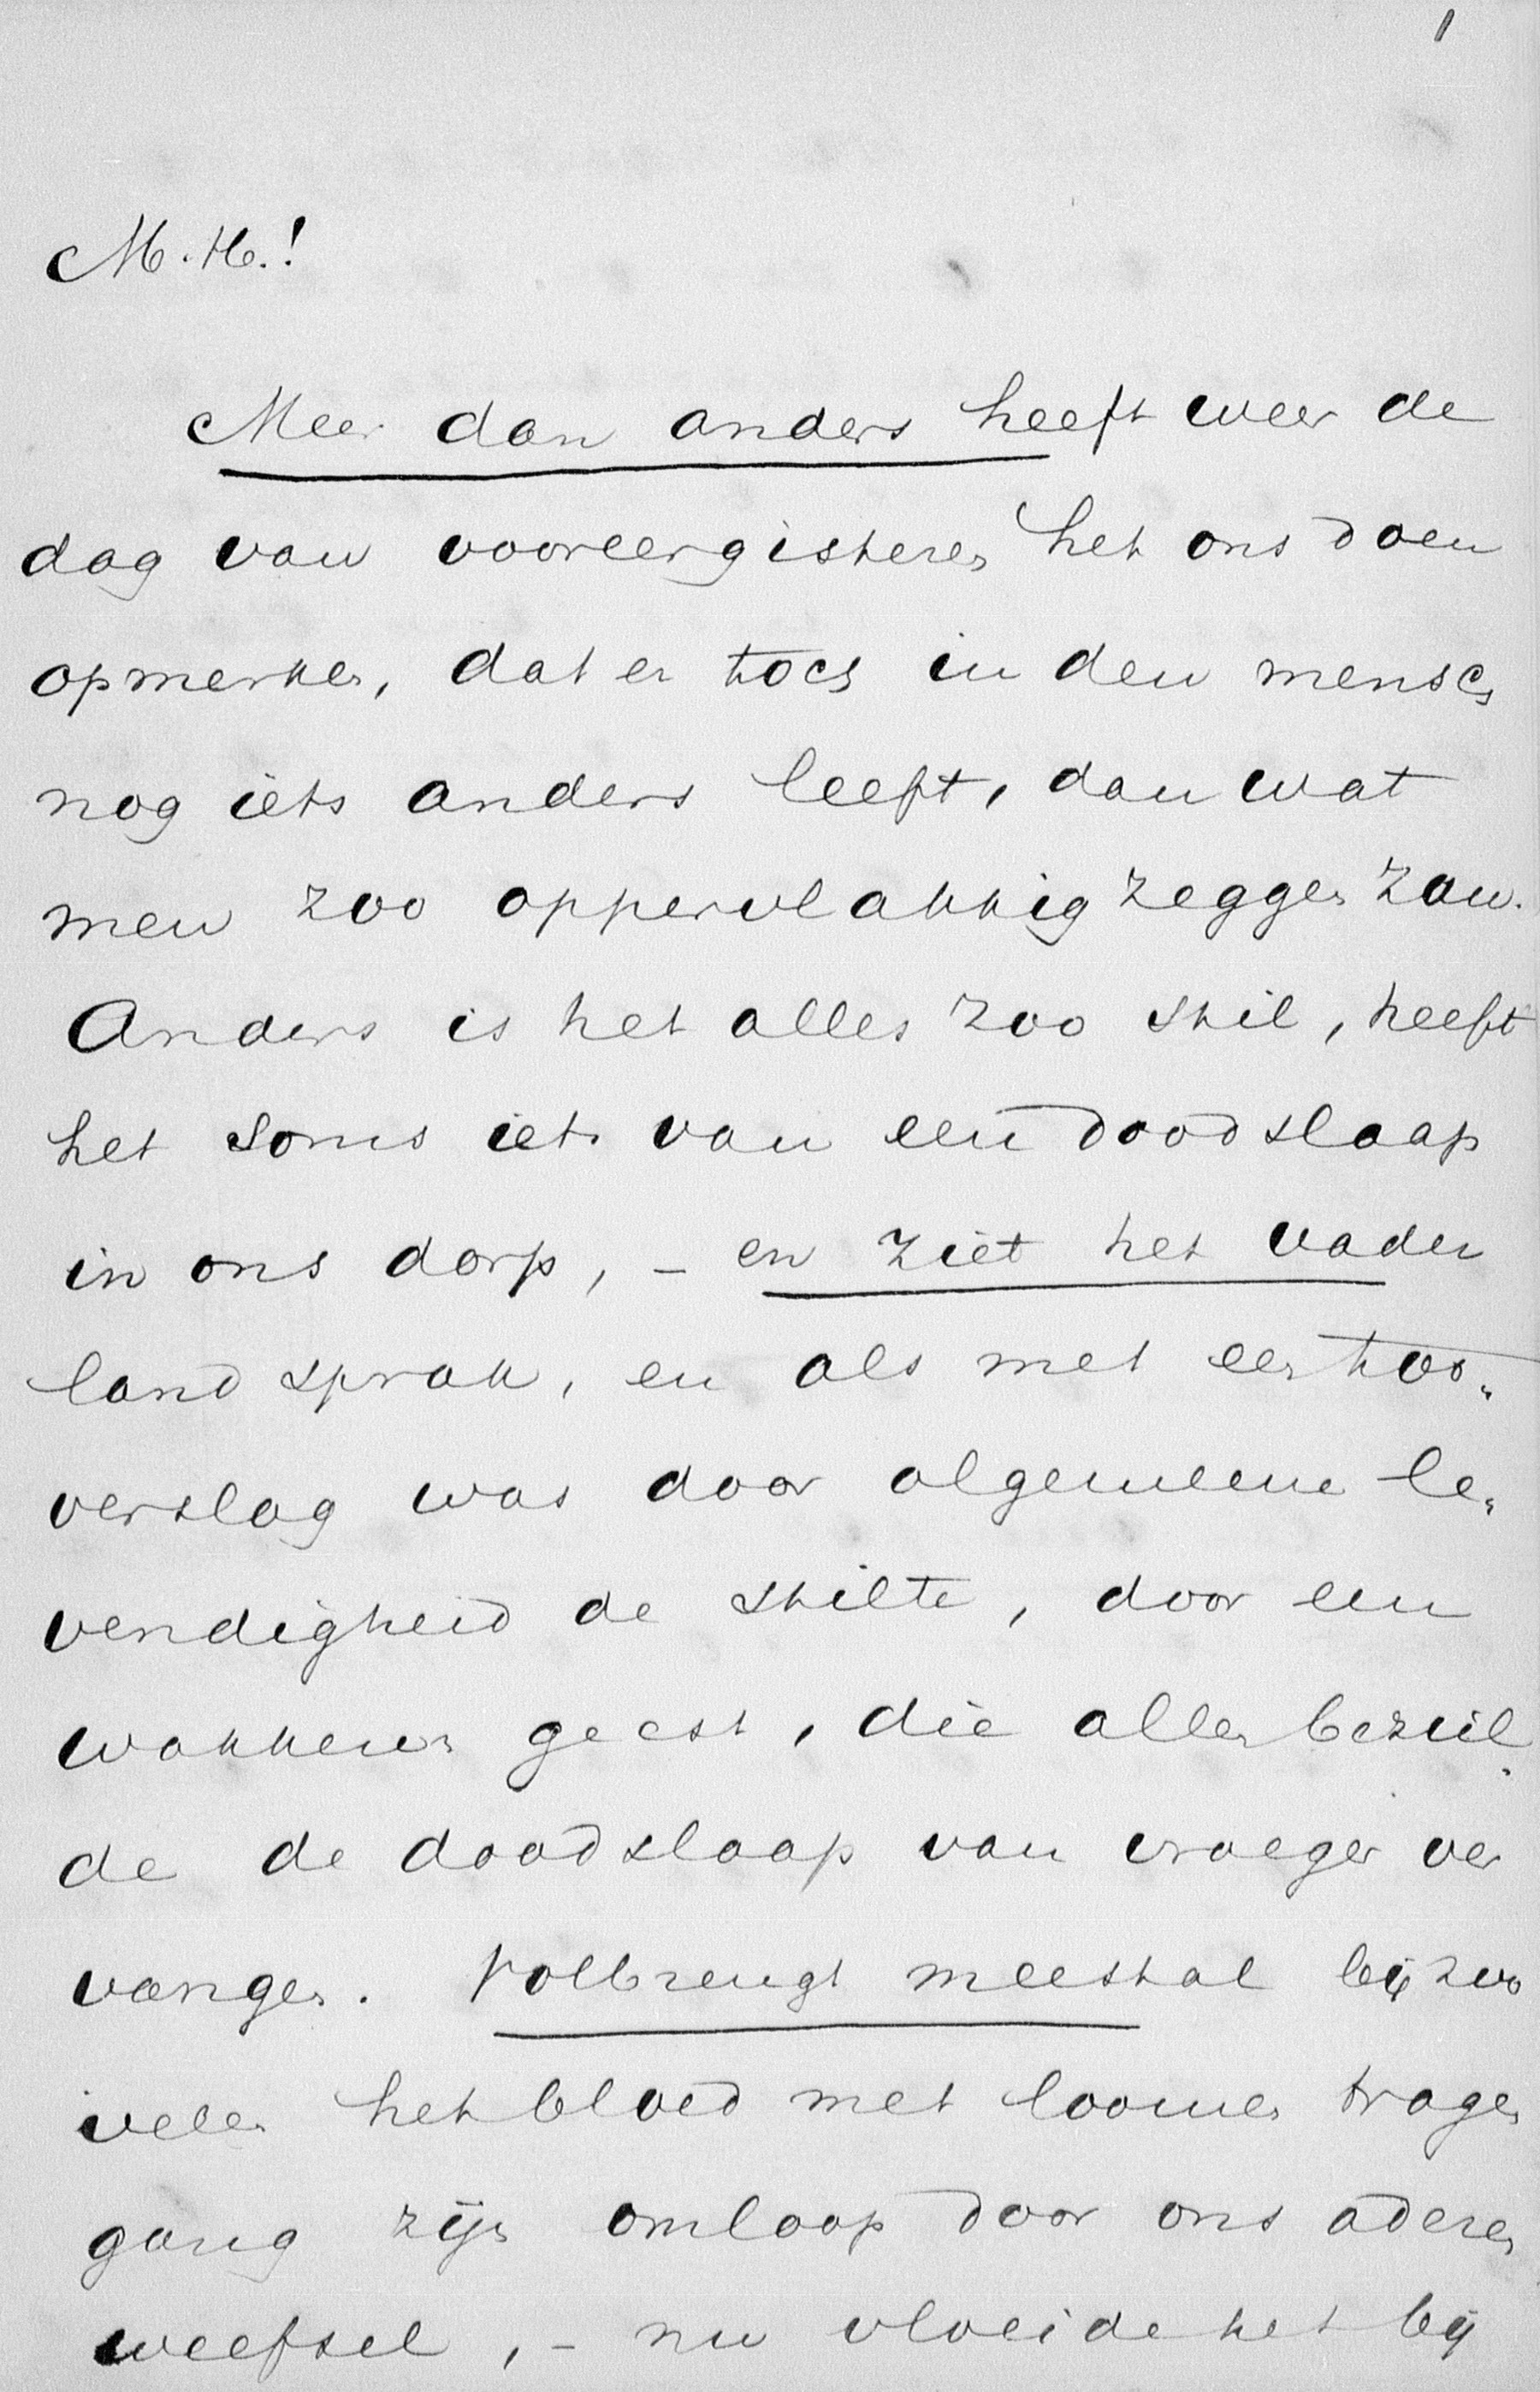 1
M. H.!
Meer dan anders heeft weer de
dag van vooreergisteren het ons doen
opmerken, dat er toch in den mensch
nog iets anders leeft, dan wat
men zoo oppervlakkig zeggen zou.
Anders is het alles zoo stil, heeft
het soms iets van een doodslaap
in ons dorp, – en ziet het vader
land sprak, en als met een too„
verslag was door algemeene le„
vendigheid de stilte, door een
wakkeren geest, die allen beziel„
de de doodslaap van vroeger ver
vangen. Volbrengt meestal bij zoo
velen het bloed met loomen tragen
gang zijn omloop door ons aderen
weefsel, – nu vloeide het bij